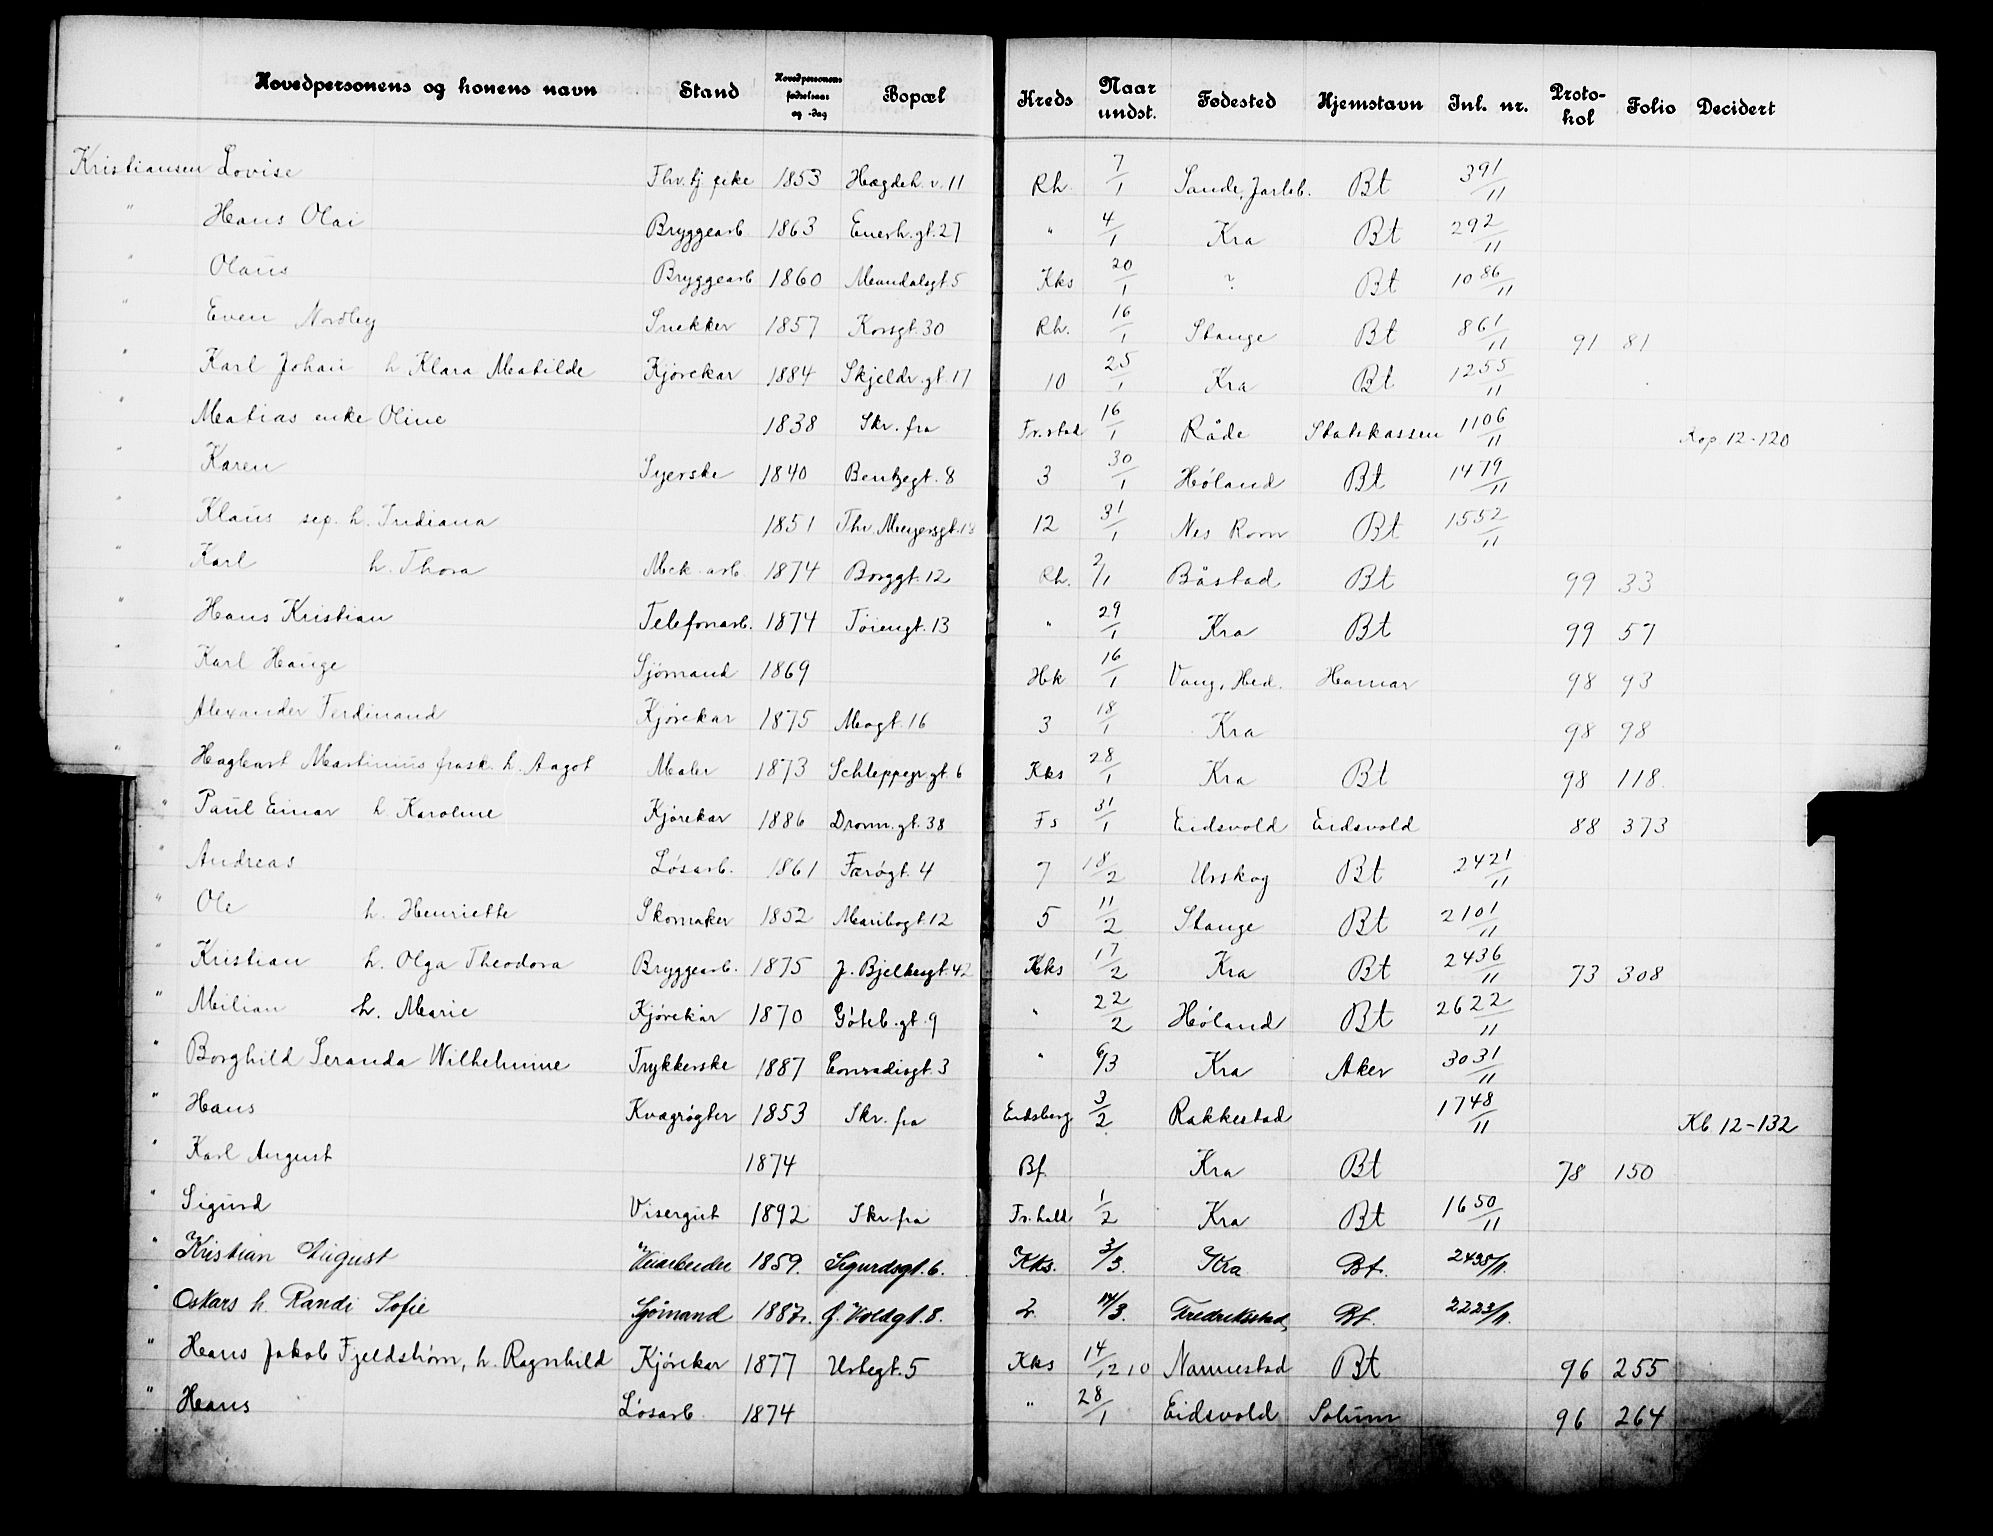 Hovedpersonens og konens navn Stand Hovedpersonens fødselsaar og -dag Bopæl Kreds Naar undst. Fødested Hjemstavn Inl. nr. Proto-kol Folio Decidert
Kristiansen Lovise 1853 Hægdeh. v. 11 Rh. 7/1 Sande, Jarlsb. Bt 391/11
" Hans Olai Bryggearb 1863 Enerh. gt. 27 " 4/1 Kra Bt 292/11
" Olaus Bryggearb 1860 Mandalsgt. 5 Kks 20/1 ? Bt 1086/11
" Even Nordby Snekker 1857 Korsgt. 30 Rh. 16/1 Stange Bt 861/11 91 81
" Karl Johan h Klara Matilde Kjørekar 1884 Skjeldr. gt. 17 10 25/1 Kra Bt 1255/11
" Matias enke Oline 1838 Skr. fra Fr.stad 16/1 Råde Statskassen 1106/11 Kop 12-120
" Karen Syerske 1840 Bentzegt. 8 3 30/1 Høland Bt 1479/11
" Klaus sep. h. Indiana 1851 Thv. Meyersgt. 12 31/1 Nes Rom Bt 1552/11
" Karl h. Thora Mek. arb. 1874 Borggt. 12 Rh. 2/1 Båstad Bt 99 33
" Hans Kristian Telefonarb. 1874 Tøiengt. 13 " 29/1 Kra Bt 99 57
" Karl Hauge Sjømand 1869 Hk 16/1 Vang, Hed. Hamar 98 93
" Alexander Ferdinand Kjørekar 1875 Mogt. 16 3 18/1 Kra 98 98
" Hagbart Martinius frask. h. Aagot Maler 1873 Schleppegr. gt. 6 Kks 28/1 Kra Bt 98 118
" Paul Einar h Karoline Kjørekar 1886 Dronn. gt. 38 Fs 31/1 Eidsvold Eidsvold 88 373
" Andreas Løsarb. 1861 Færøgt. 4 7 18/2 Urskog Bt 2421/11
" Ole h. Henriette Skomaker 1852 Maribogt. 12 5 11/2 Stange Bt 2101/11
" Kristian h. Olga Theodora Bryggearb. 1875 J. Bjelkesgt. 42 Kks 17/2 Kra Bt 2436/11 73 308
" Milian h. Marie Kjørekar 1870 Gøteb. gt. 9 " 22/2 Høland Bt 2622/11
" Borghild Seranda Wilhelmine Trykkerske 1887 Conradisgt. 3 " 6/3 Kra Aker 3031/11
" Hans Kvægrøgter 1853 Skr. fra Eidsberg 3/2 Rakkestad 1748/11 Kb 12-132
" Karl August 1874 Bf. Kra Bt 78 150
" Sigurd Visergut 1892 Skr. fra Fr.hald 1/2 Kra Bt 1650/11
" Kristian August 1859. Sigurdsgt. 6. Kks. 3/3. Kra Bt. 2435/11.
" Oskars h. Randi Sofie Sjømand 1887. f. Voldgt. 8. 2. 14/3. Fredriksstad, Bt. 2223/11.
" Hans Jakob Fjeldstrøm, h. Ragnhild Kjørekar 1877 Urtegt. 5 Kks 14/12 10 Nannestad Bt 96 255
" Hans Løsarb. 1874 " 28/1 Eidsvold Solum 96 264